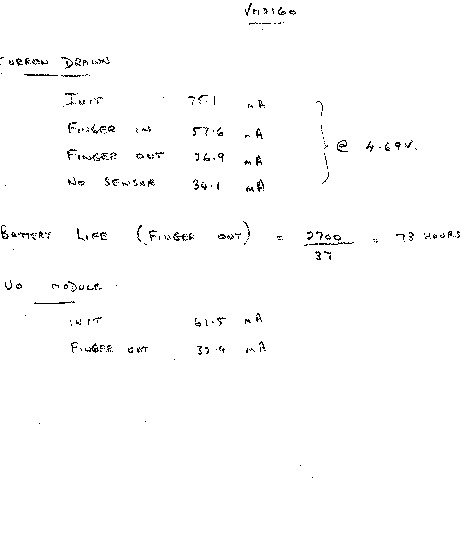 VM2160
CURREN DRAWN
INIT 75.1 mA
FINGER IN 57.6 mA
FINGER OUT 36.9 mA @ 4.69V.
NO SENSOR 34.1 mA
BATTERY LIFE (FINGER OUT) = 2700 / 37 = 73 HOURS
NO MODULE
INIT 61.5 mA
FINGER OUT mA